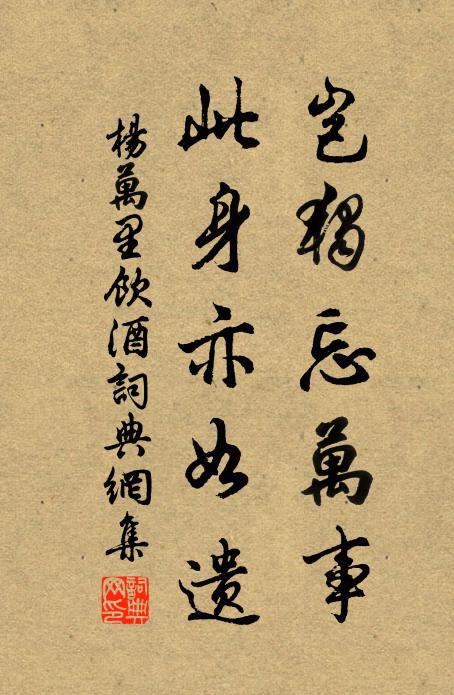 豈獨忘萬事
此身亦如遺
楊萬里飲酒詞典網集
詞典网印